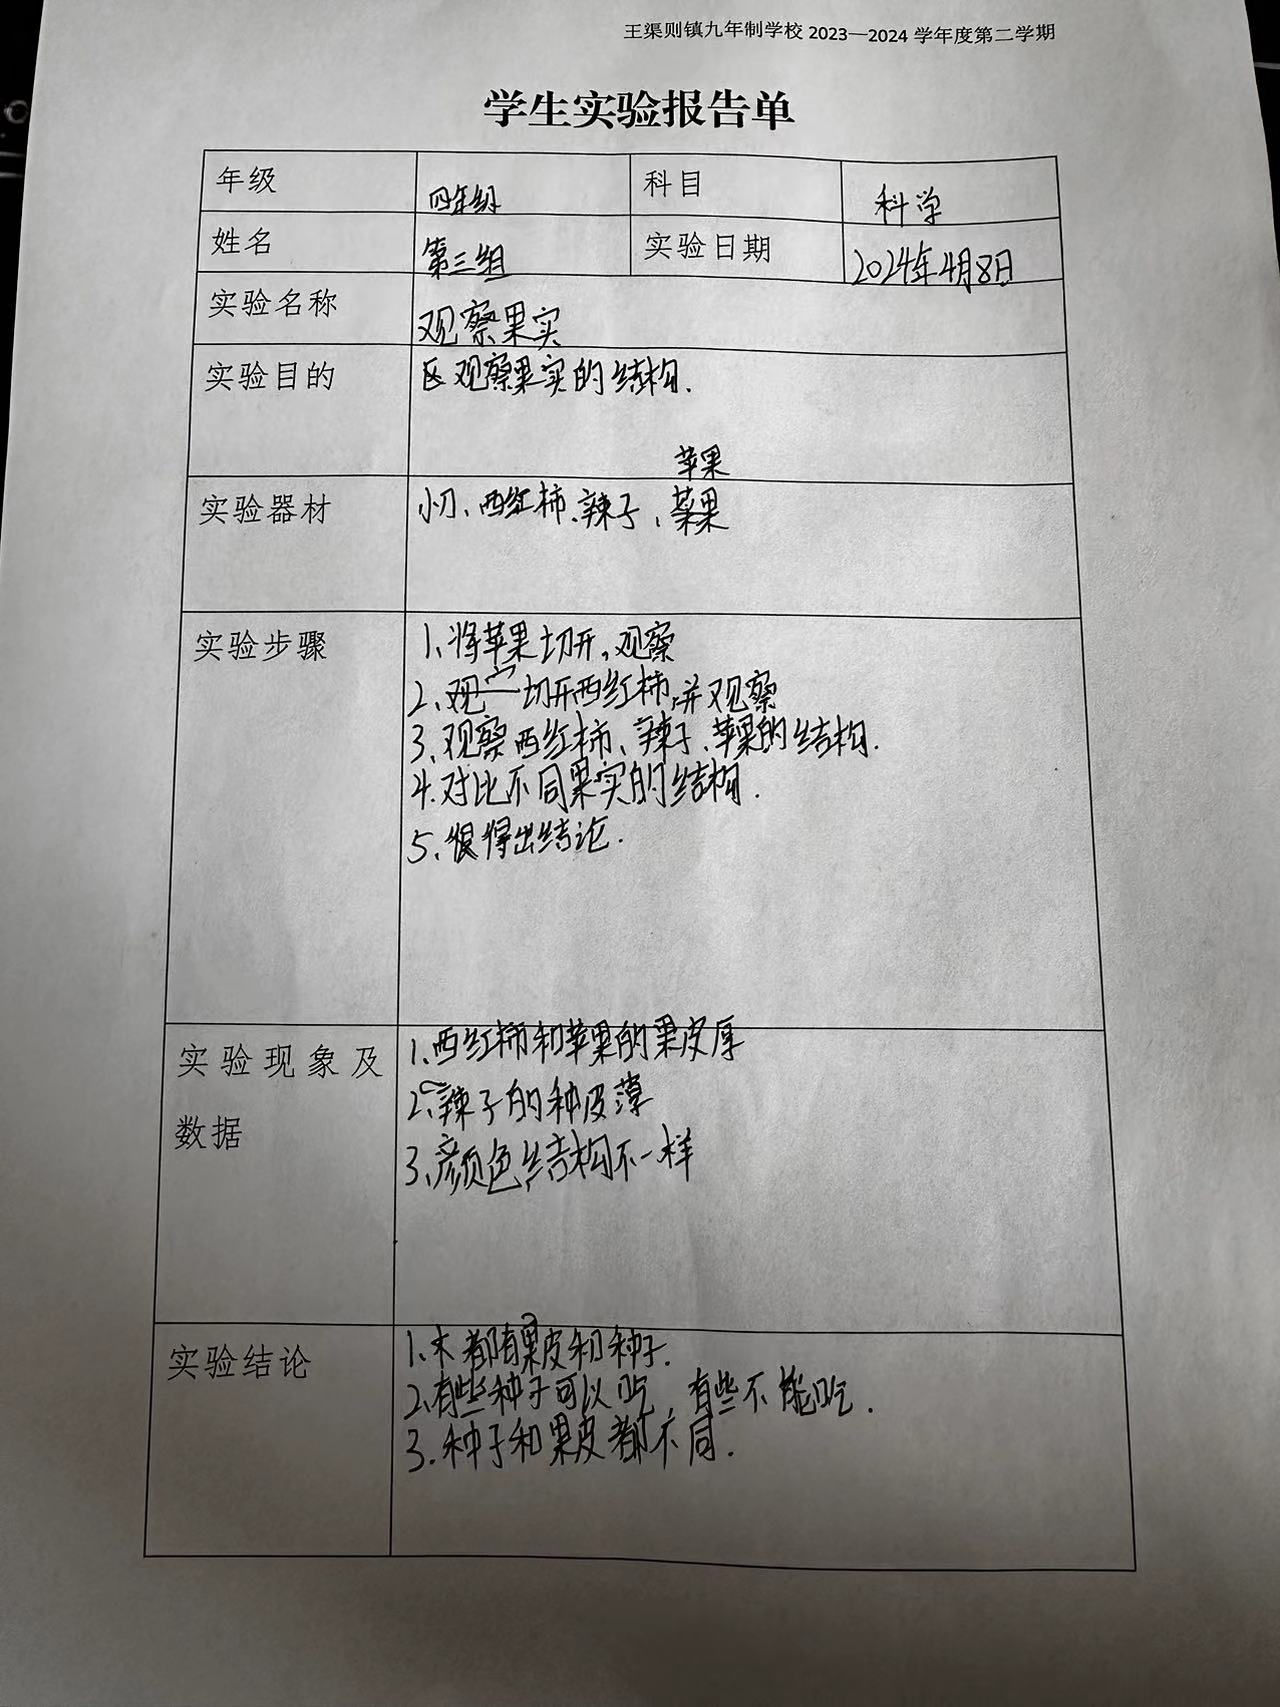 王渠则镇九年制学校 2023—2024 学年度第二学期
学生实验报告单
年级 四年级 科目 科学
姓名 第三组 实验日期 2024年4月8日
实验名称 观察果实
实验目的 观察果实的结构.
苹果
实验器材 小刀、西红柿、辣子、苹果
实验步骤 1、将苹果切开,观察
2、观 切开西红柿,并观察
3、观察西红柿、辣子、苹果的结构.
4.对比不同果实的结构.
5、得出结论.
实验现象及 1、西红柿和苹果的果皮厚
2、辣子的种皮薄
数据
3、颜色,结构不一样
实验结论 1、都有果皮和种子.
2、有些种子可以吃,有些不能吃.
3.种子和果皮都不同.